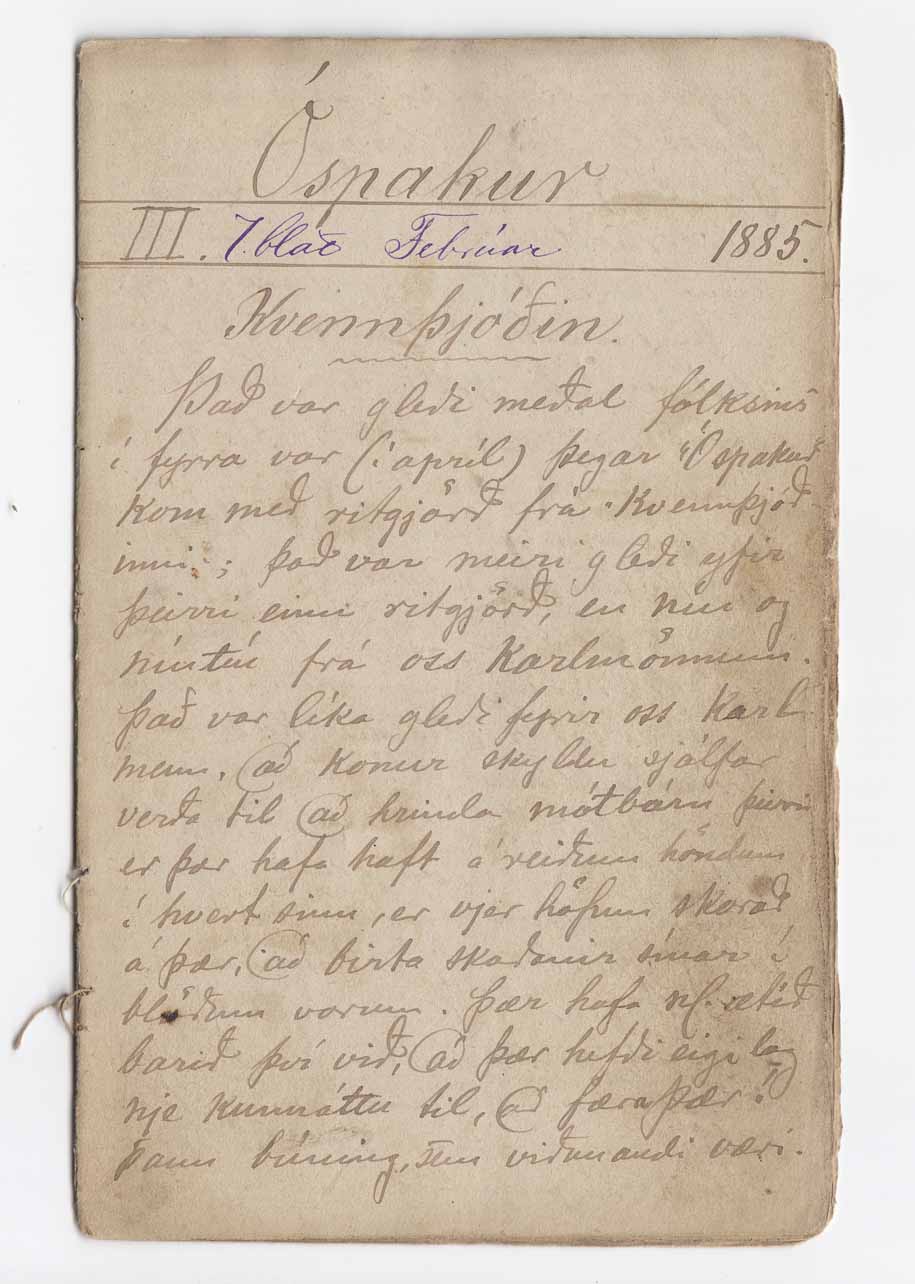 Óspakur
III. 7. blað Febrúar 1885.
Kvennþjóðin.
Það var gleði meðal fólksins
í fyrra var (í apríl) þegar "Óspakur"
kom með ritgjörð frá "Kvennþjóð-
inni"; það var meiri gleði yfir
þeirri einni ritgjörð, en níu og
níutíu frá oss Karlmönnum.
Það var líka gleði fyrir oss Karl-
menn, að konur skyldu sjálfar
verða til að hrinda mótbáru þeirri
er þær hafa haft á reiðum höndum
í hvert sinn, er vjer höfum skorað
á þær, að birta skoðanir sínar í
blöðum vorum. Þær hafa nfl. ætíð
barið því við, að þær hefði eigi lag
nje kunnáttu til, að færa þær í
þann búning, sem viðunandi væri.